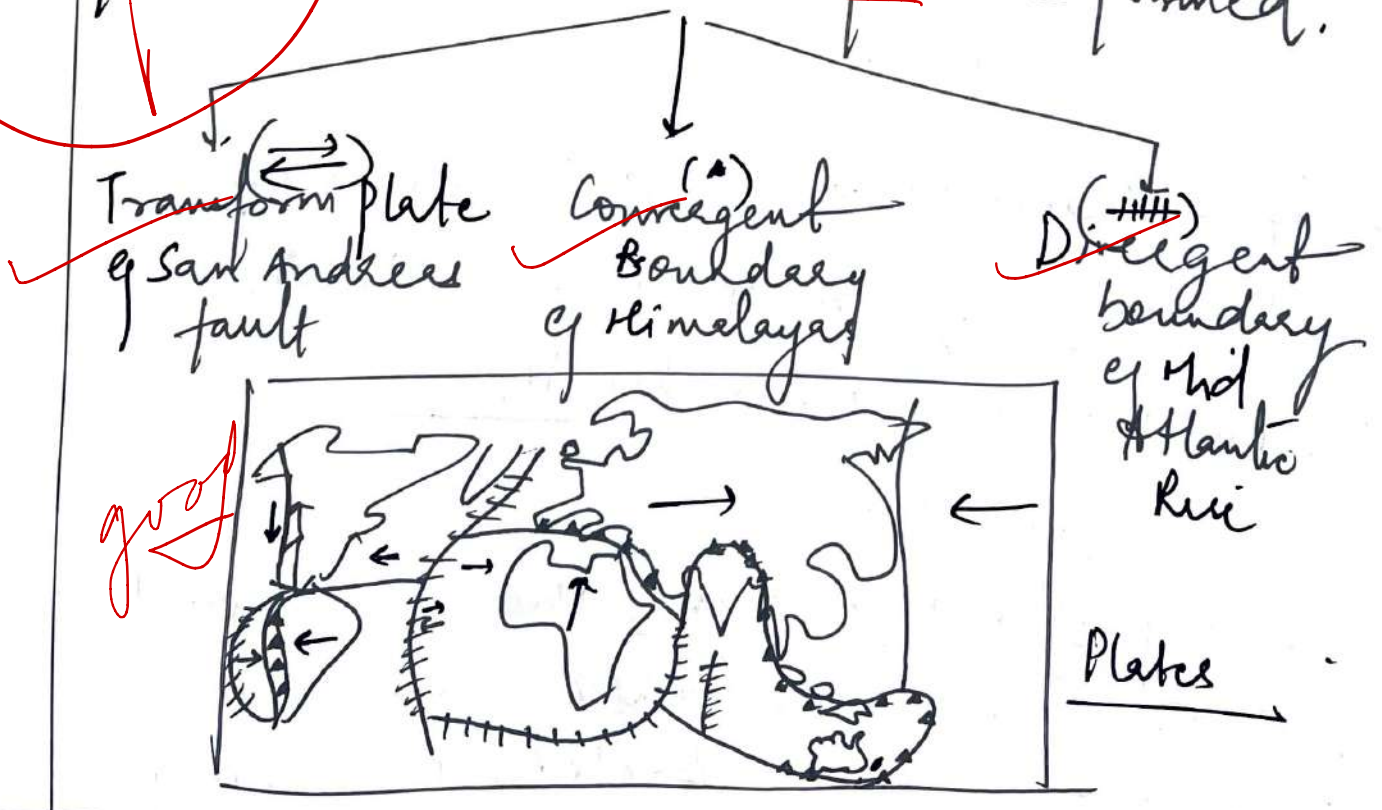 Transform Plate
eg San Andreas
fault
Convergent
Boundary
eg Himalayas
Divergent
boundary
eg Mid
Atlantic
good
Plates